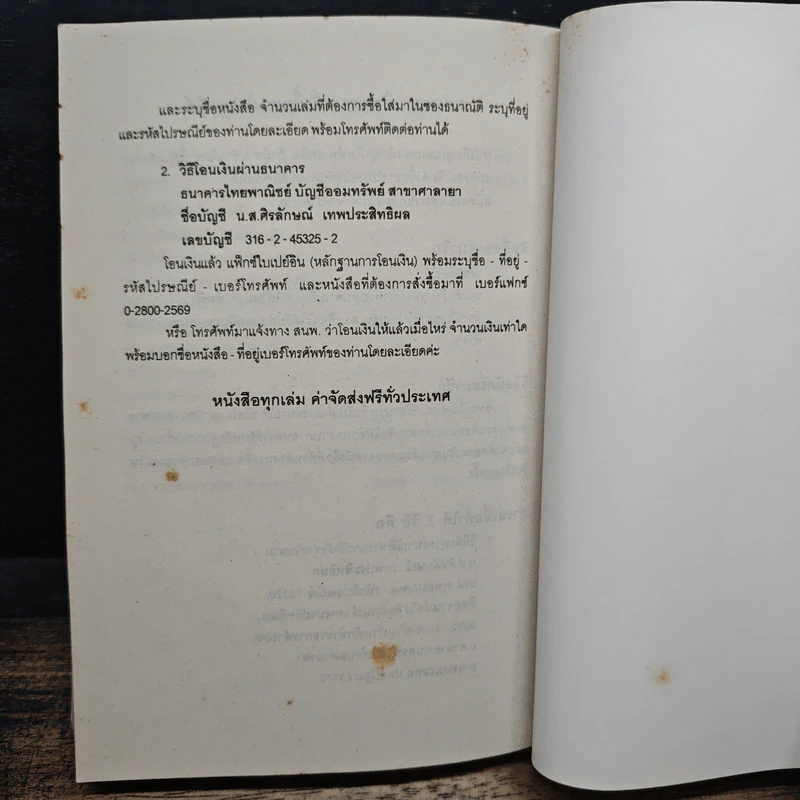 และระบุชื่อหนังสือ จำนวนเล่มที่ต้องการซื้อใส่มาในซองธนาณัติ ระบุที่อยู่
และรหัสไปรษณีย์ของท่านโดยละเอียด พร้อมโทรศัพท์ติดต่อท่านได้
2. วิธีโอนเงินผ่านธนาคาร
ธนาคารไทยพาณิชย์ บัญชีออมทรัพย์ สาขาศาลายา
ชื่อบัญชี น.ส.ศิรลักษณ์ เทพประสิทธิผล
เลขบัญชี 316 - 2 - 45325 - 2
โอนเงินแล้ว แฟ็กซ์ใบเปย์อิน (หลักฐานการโอนเงิน) พร้อมระบุชื่อ - ที่อยู่ -
รหัสไปรษณีย์ - เบอร์โทรศัพท์ และหนังสือที่ต้องการสั่งซื้อมาที่ เบอร์แฟกซ์
0-2800-2569
หรือ โทรศัพท์มาแจ้งทาง สนพ. ว่าโอนเงินให้แล้วเมื่อไหร่ จำนวนเงินเท่าใด
พร้อมบอกชื่อหนังสือ - ที่อยู่เบอร์โทรศัพท์ของท่านโดยละเอียดค่ะ
หนังสือทุกเล่ม ค่าจัดส่งฟรีทั่วประเทศ